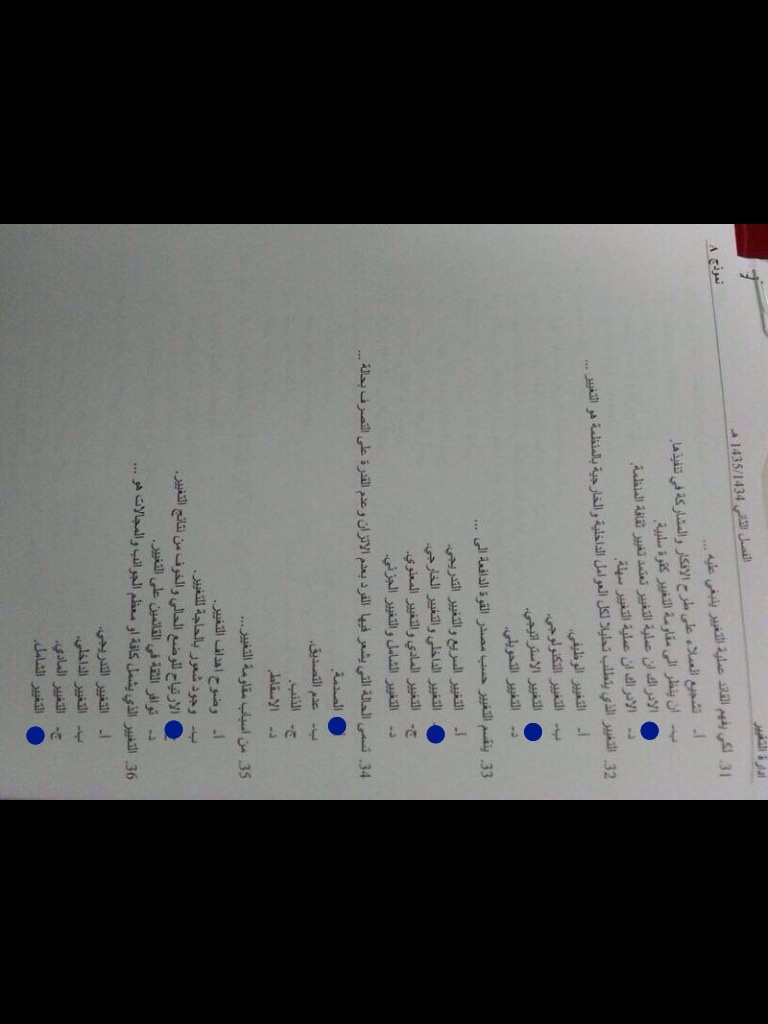 ادارة التغيير
الفصل الثاني 1435/1434 هـ
نموذج ٨
31. لكي يفهم القائد عملية التغيير ينبغي عليه ...
أ- تشجيع العملاء على طرح الافكار والمشاركة في تنفيذها.
ب- ان ينظر الى مقاومة التغيير كقوة سلبية.
الادراك ان عملية التغيير تعتمد تغيير ثقافة المنظمة.
د- الادراك ان عملية التغيير سهلة.
32. التغيير الذي يتطلب تحليلا لكل العوامل الداخلية والخارجية بالمنظمة هو التغيير ...
أ- التغيير الوظيفي.
ب- التغيير التكنولوجي.
التغيير الاستراتيجي.
د- التغيير التحويلي.
33. ينقسم التغيير حسب مصدر القوة الدافعة الى ...
أ- التغيير السريع والتغيير التدريجي.
التغيير الداخلي والتغيير الخارجي.
ج- التغيير المادي والتغيير المعنوي.
د- التغيير الشامل والتغيير الجزئي.
34. تسمى الحالة التي يشعر فيها الفرد بعدم الاتزان وعدم القدرة على التصرف بحالة ...
الصدمة.
ب- عدم التصديق.
ج- الذنب.
د- الاسقاط.
35. من اسباب مقاومة التغيير...
أ- وضوح اهداف التغيير.
ب- وجود شعور بالحاجة للتغيير.
الارتياح للوضع الحالي والخوف من نتائج التغيير.
د- توافر الثقة في القائمين على التغيير.
36. التغيير الذي يشمل كافة او معظم الجوانب والمجالات هو ...
أ- التغيير التدريجي.
ب- التغيير الداخلي.
ج- التغيير المادي.
التغيير الشامل.